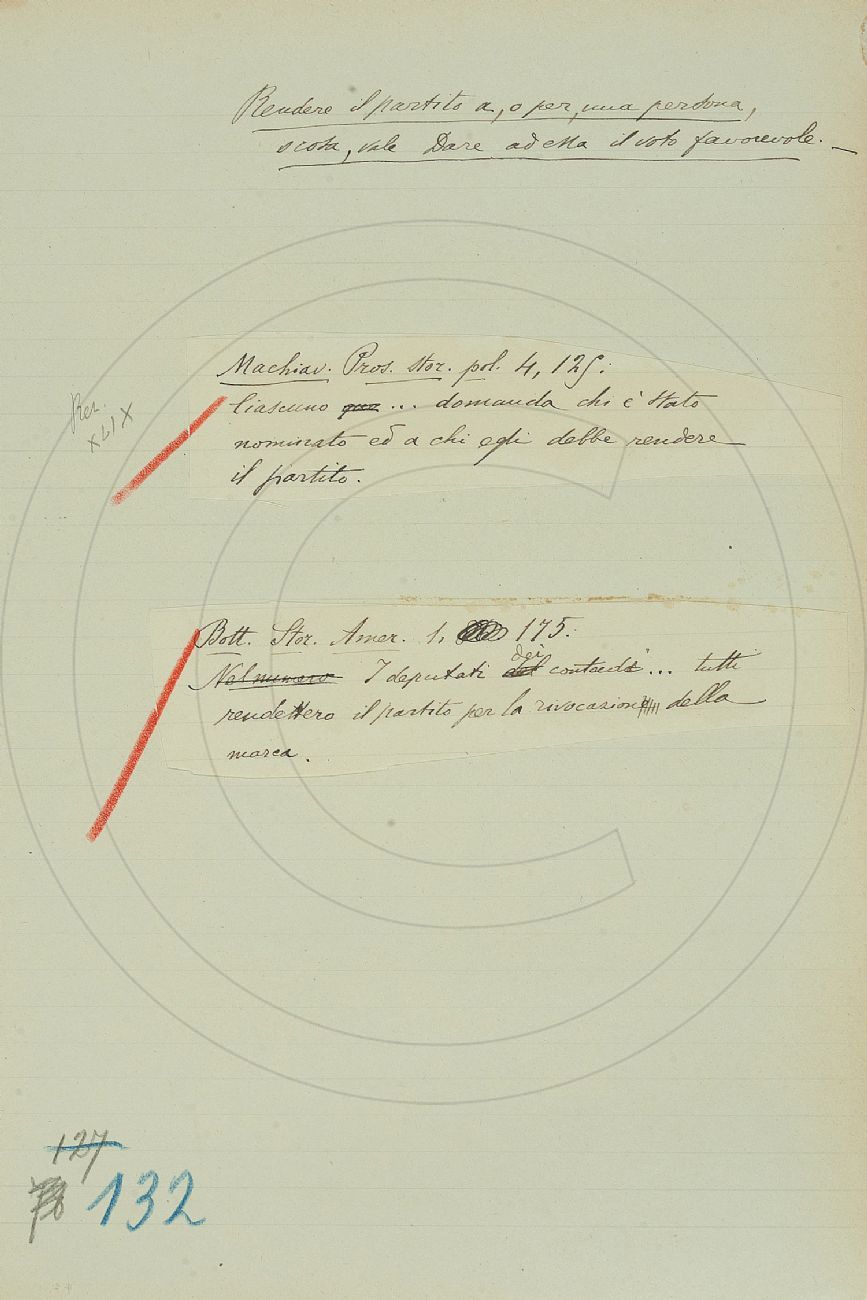 Rendere il partito a, o per, una persona,
o cosa, vale Dare ad essa il voto favorevole. –
Machiav. Pros. stor. pol. 4, 125:
Ciascuno ... domanda chi è stato
Rer.
XLIX
nominato ed a chi egli debbe rendere
il partito.
Bott. Stor. Amer. 1, 175:
dei
Nel numero I deputati del contado ... tutti
rendettero il partito per la rivocazione della
marca.
127
132